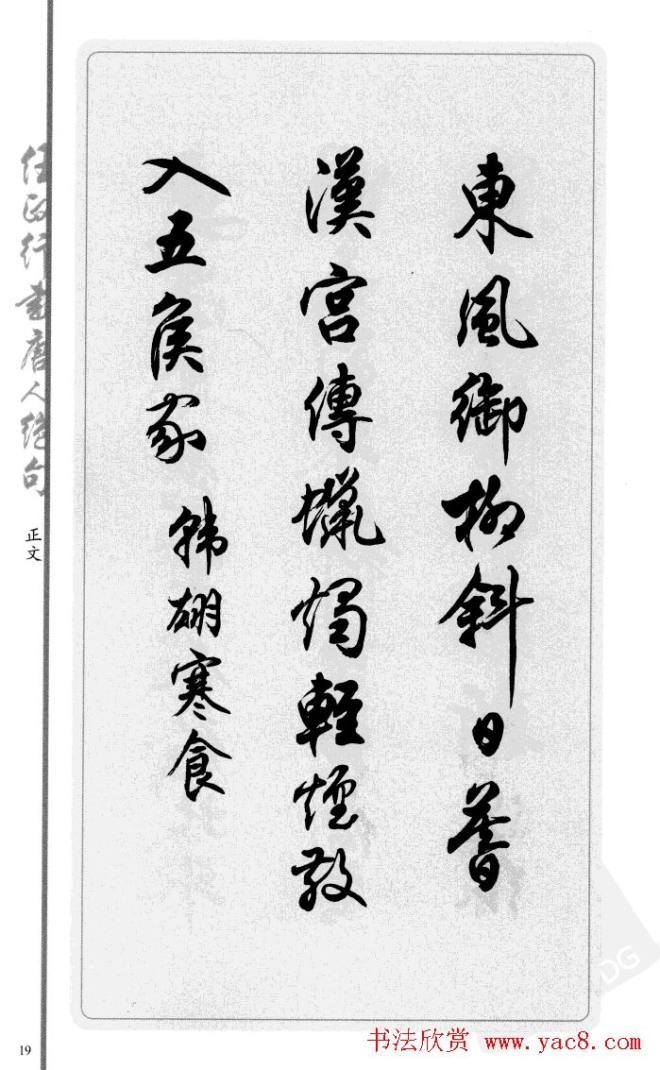 東風御柳斜日暮
漢宮傳蠟燭輕煙散
入五侯家
韩翃寒食
任政行書唐人绝句
正文
19
书法欣赏 www.yac8.com